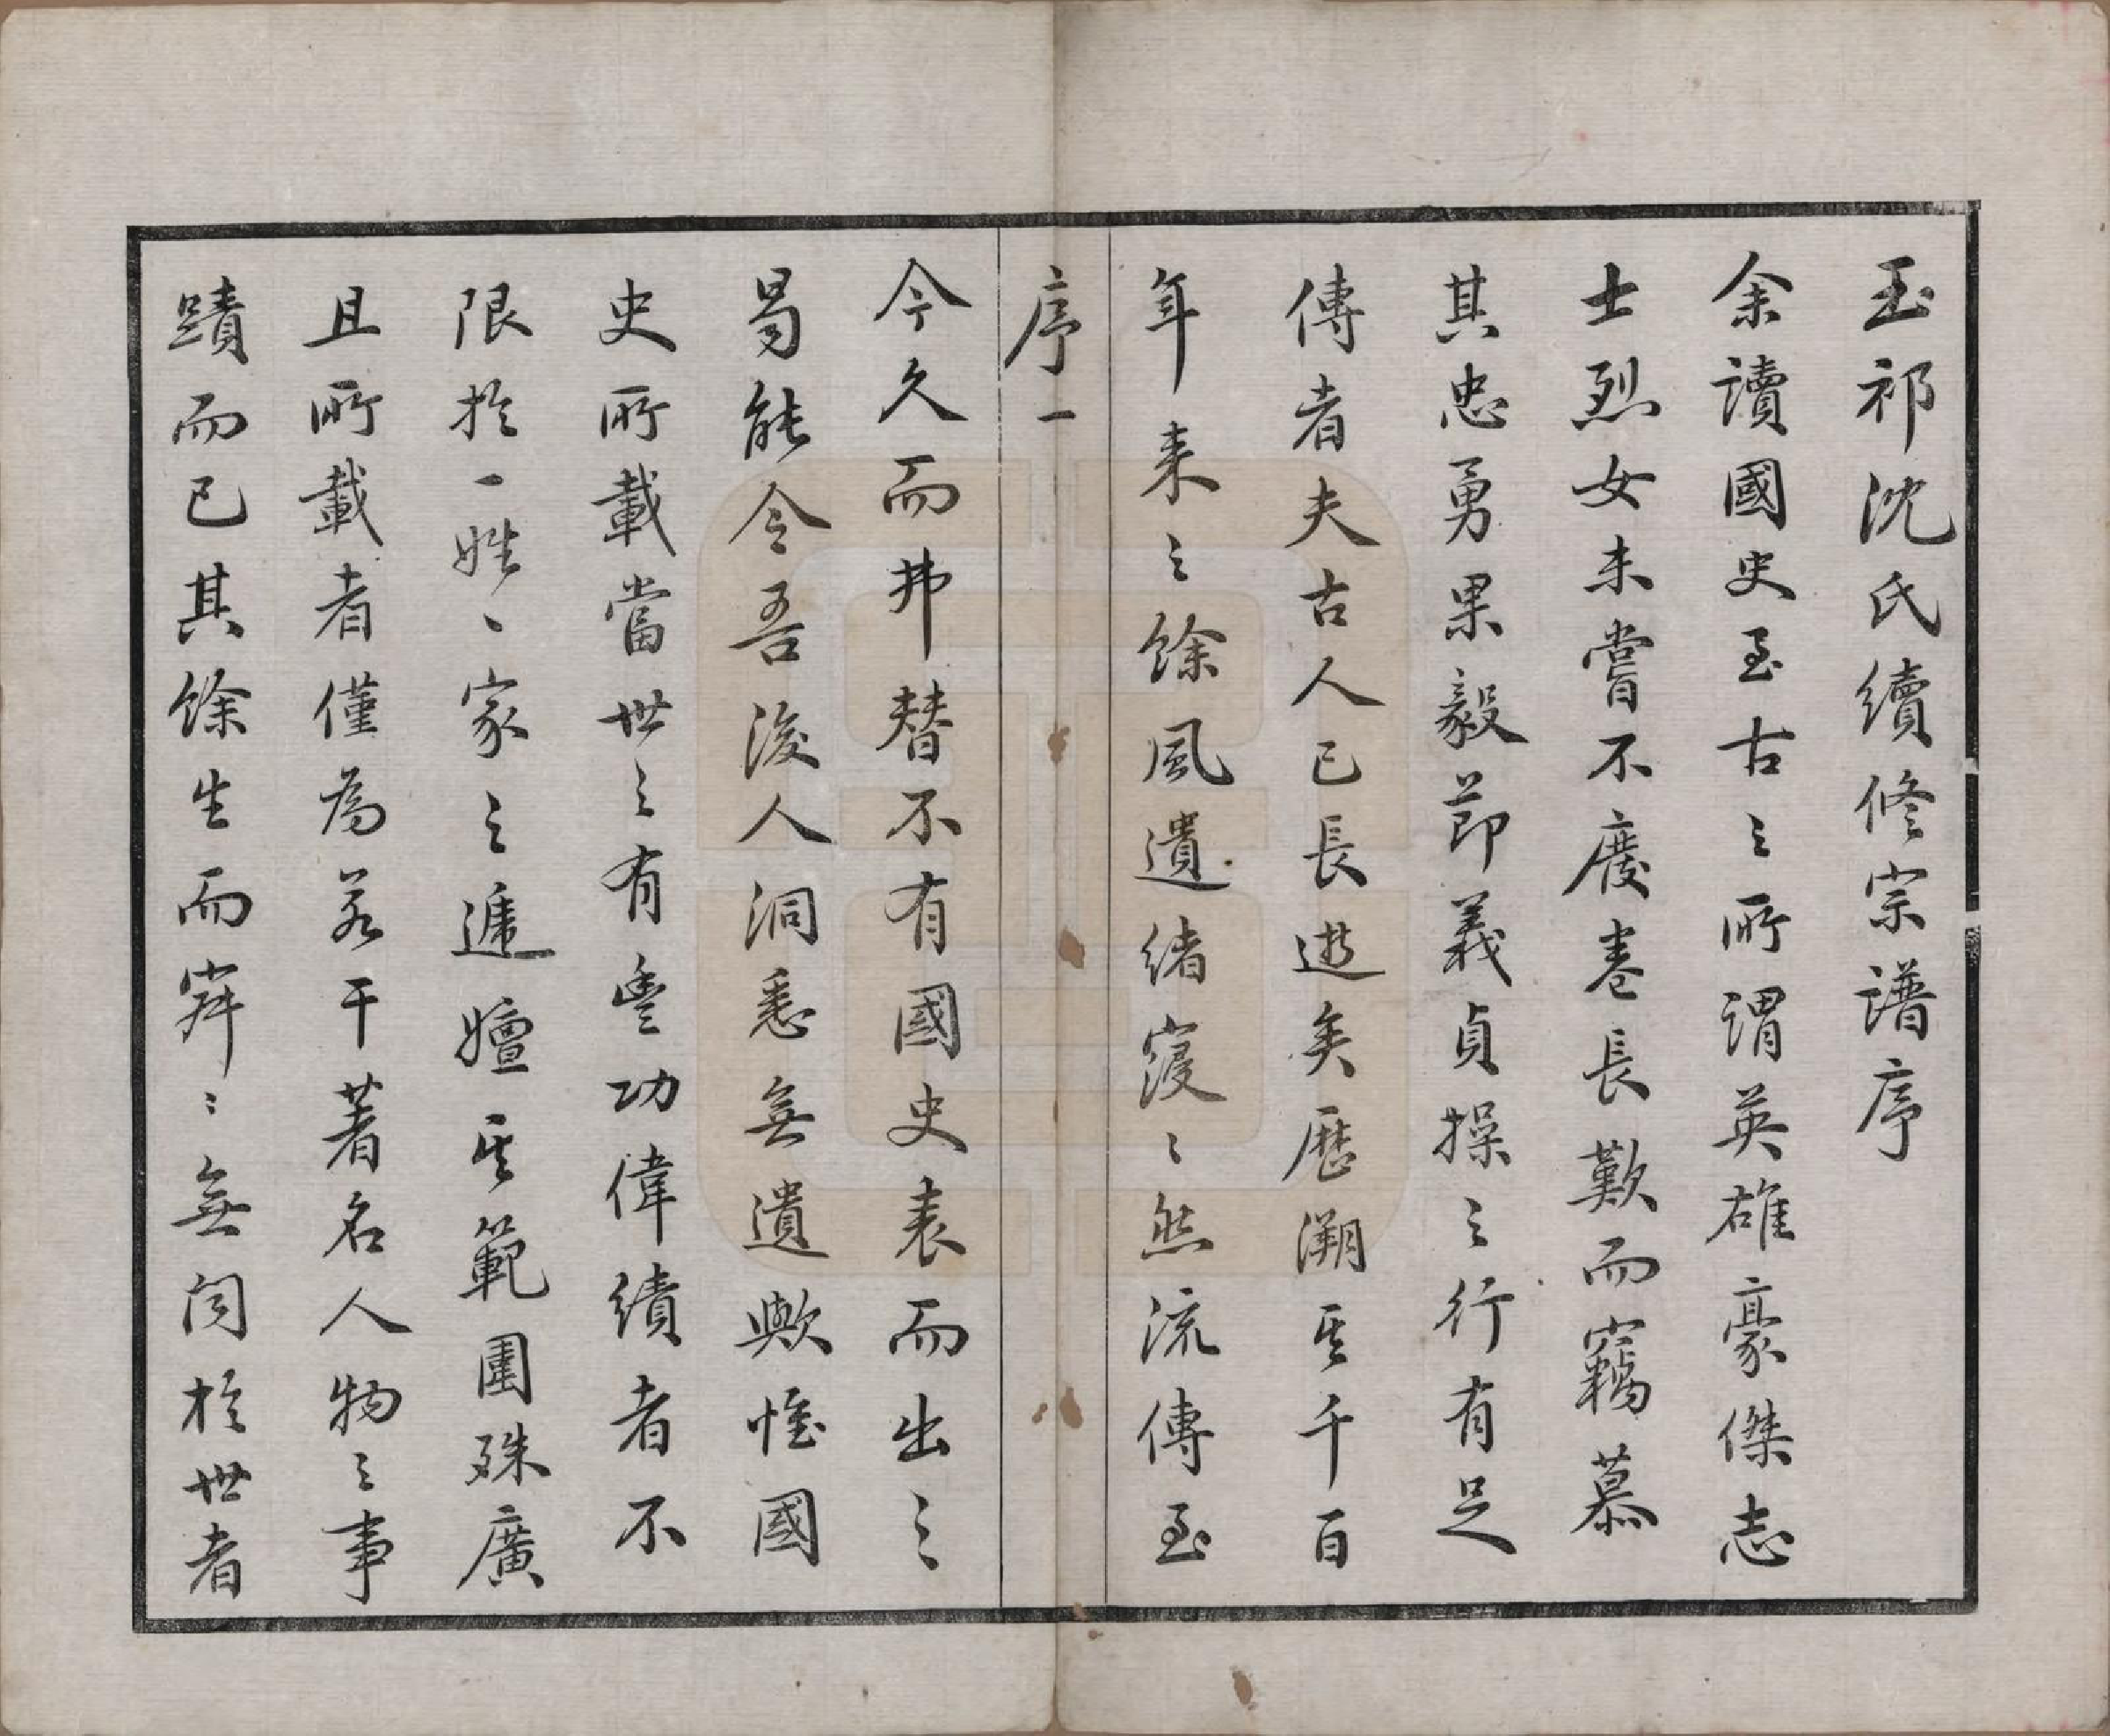 玉祁沈氏續修宗譜序
余讀國史至古之所謂英雄豪傑志
士烈女未嘗不廢卷長歎而竊慕
其忠勇果毅節義貞操之行有足
傳者夫古人已長逝矣歷溯其千百
年來之餘風遺緒寖〻然流傳至
序一
今久而弗替不有國史表而出之
曷能令吾後人洞悉無遺歟惟國
史所載當世之有豐功偉績者不
限於一姓一家之遞嬗其範圍殊廣
且所載者僅為若干著名人物之事
蹟而已其餘生而寂〻無聞於世者